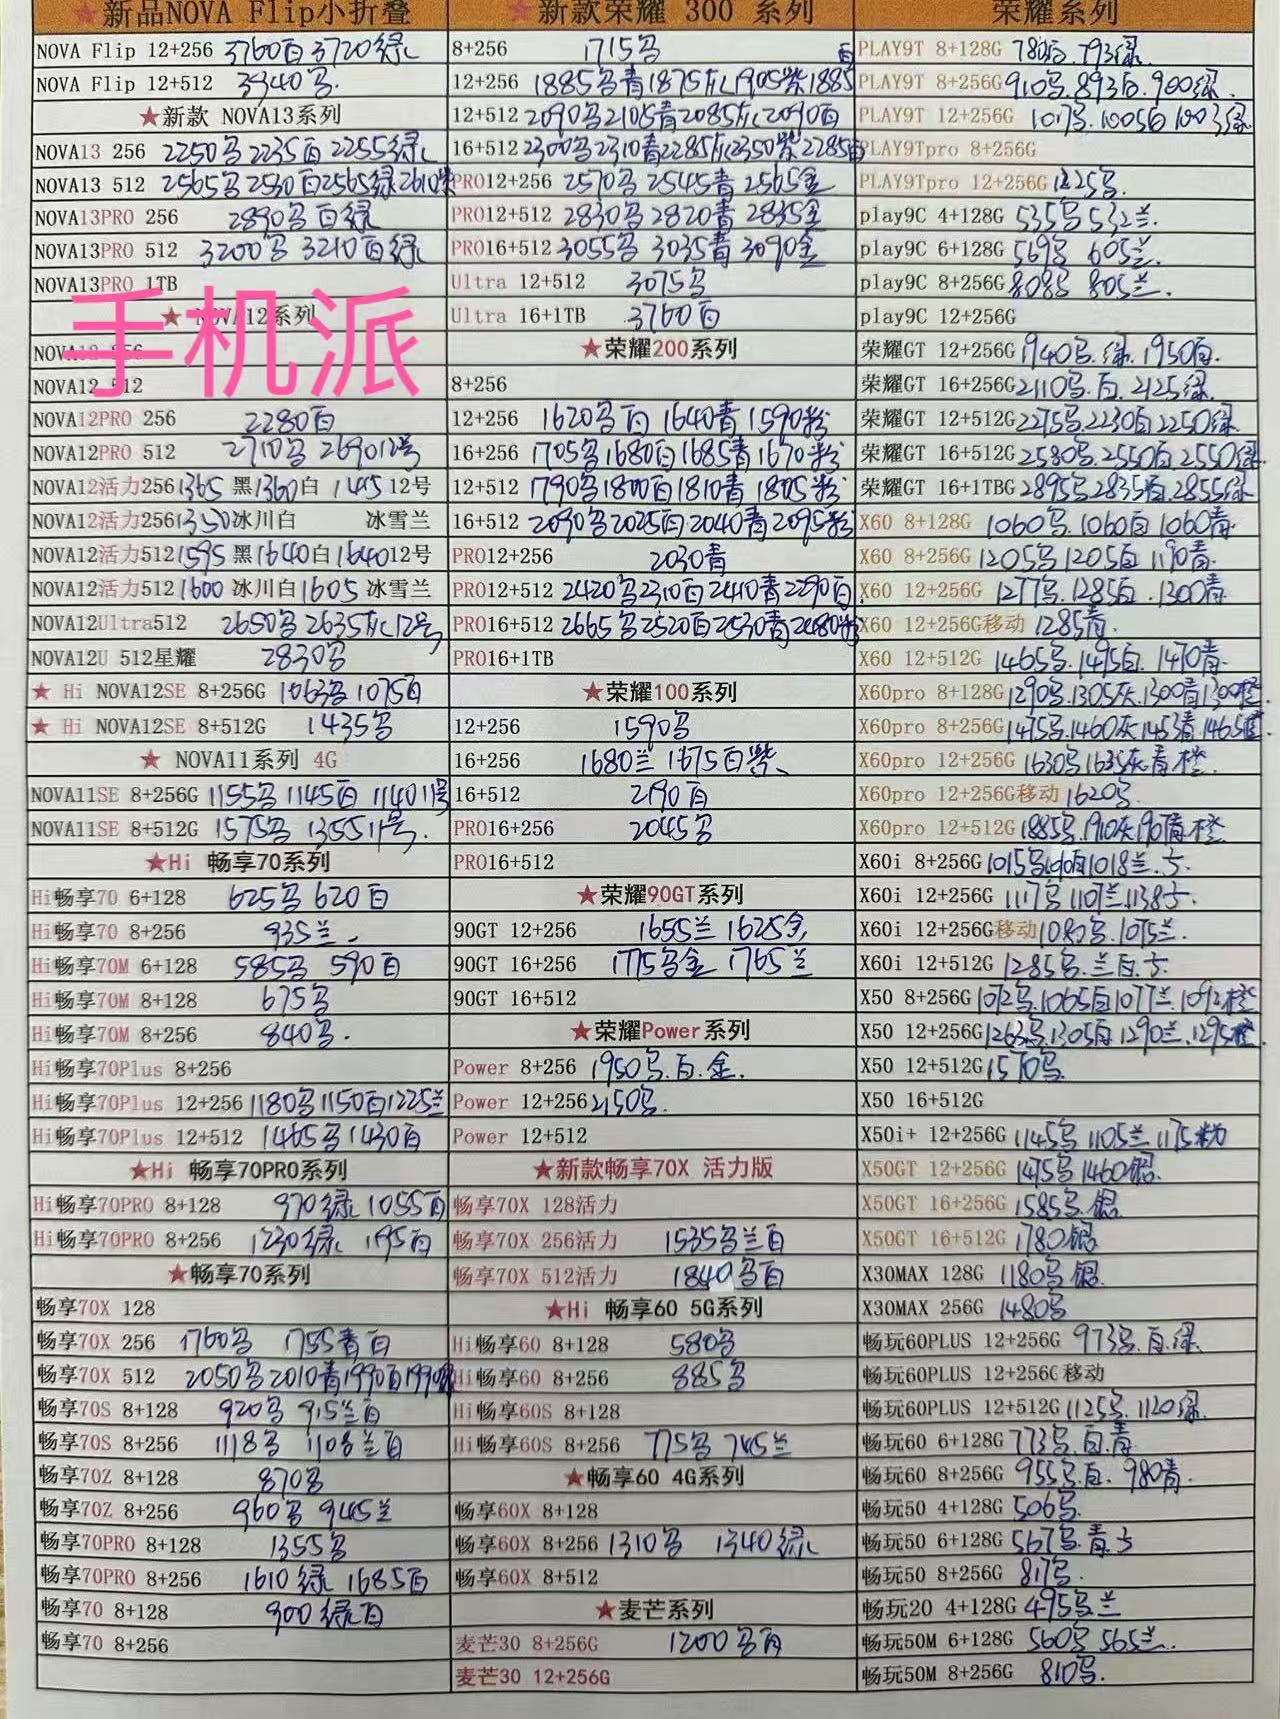 ★新品NOVA Flip小折叠
NOVA Flip 12+256 3760白 3720绿
NOVA Flip 12+512 3940马.
★新款 NOVA13系列
NOVA13 256 2250马 2235白 2255绿
NOVA13 512 2565马 2530白 2565绿 2610紫
NOVA13PRO 256 2890马 白 绿
NOVA13PRO 512 3200马 3210白 绿
NOVA13PRO 1TB
手机派
★ NOVA12系列
NOVA12 256
NOVA12 512
NOVA12PRO 256 2280白
NOVA12PRO 512 2710马 2690 12号
NOVA12活力256 1365 黑 1360 白 1445 12号
NOVA12活力256 1350 冰川白 冰雪兰
NOVA12活力512 1595 黑 1640 白 1640 12号
NOVA12活力512 1600 冰川白 1605 冰雪兰
NOVA12Ultra512 2650马 2635灰 12号
NOVA12U 512星耀 2830马
★ Hi NOVA12SE 8+256G 1063马 1075白
★ Hi NOVA12SE 8+512G 1435马
★ NOVA11系列 4G
NOVA11SE 8+256G 1155马 1145白 1140 11号
NOVA11SE 8+512G 1575马 1355 11号.
★Hi 畅享70系列
Hi畅享70 6+128 625马 620白
Hi畅享70 8+256 935兰.
Hi畅享70M 6+128 585马 590白
Hi畅享70M 8+128 675马
Hi畅享70M 8+256 840马.
Hi畅享70Plus 8+256
Hi畅享70Plus 12+256 1180马 1150白 1225兰
Hi畅享70Plus 12+512 1465马 1430白
★Hi 畅享70PRO系列
Hi畅享70PRO 8+128 970绿 1055白
Hi畅享70PRO 8+256 1230绿 1195白
★畅享70系列
畅享70X 128
畅享70X 256 1760马 1755青 白
畅享70X 512 2050马 2010青 1990白 1990
畅享70S 8+128 920马 915兰白
畅享70S 8+256 1118马 1108兰白
畅享70Z 8+128 870马
畅享70Z 8+256 960马 945兰
畅享70PRO 8+128 1355马
畅享70PRO 8+256 1610绿 1685白
畅享70 8+128 900绿白
畅享70 8+256
★新款荣耀 300 系列
8+256 1715马
12+256 1885马青 1875灰 1905紫 1885白
12+512 2090马 2105青 2085灰 2090白
16+512 2300马 2310青 2285灰 2350紫 2285白
PRO12+256 2570马 2545青 2565金
PRO12+512 2830马 2820青 2835金
PRO16+512 3055马 3035青 3090金
Ultra 12+512 3075马
Ultra 16+1TB 3760白
★荣耀200系列
8+256
12+256 1620马白 1640青 1590粉
16+256 1705马 1680白 1685青 1670粉
12+512 1790马 1800白 1810青 1805粉
16+512 2090马 2025白 2040青 2095粉
PRO12+256 2030青
PRO12+512 2420马 2310白 2410青 2290白
PRO16+512 2665马 2520白 2530青
PRO16+1TB
★荣耀100系列
12+256 1590马
16+256 1680兰 1675白紫、
16+512 2190白
PRO16+256 2045马
PRO16+512
★荣耀90GT系列
90GT 12+256 1655兰 1625金
90GT 16+256 1775马金 1765兰
90GT 16+512
★荣耀Power系列
Power 8+256 1950马.白.金.
Power 12+256 2150马.
Power 12+512
★新款畅享70X 活力版
畅享70X 128活力
畅享70X 256活力 1535马兰白
畅享70X 512活力 1840马白
★Hi 畅享60 5G系列
Hi畅享60 8+128 580马
Hi畅享60 8+256 885马
Hi畅享60S 8+128
Hi畅享60S 8+256 775马 745兰
★畅享60 4G系列
畅享60X 8+128
畅享60X 8+256 1310马 1340绿
畅享60X 8+512
★麦芒系列
麦芒30 8+256G 1200马白
麦芒30 12+256G
荣耀系列
PLAY9T 8+128G 780白.793绿.
PLAY9T 8+256G 910马.893白.900绿.
PLAY9T 12+256G 1017马.1005白 1003绿
PLAY9Tpro 8+256G
PLAY9Tpro 12+256G 1225马.
play9C 4+128G 535马 532兰.
play9C 6+128G 569马 605兰
play9C 8+256G 808马 805兰.
play9C 12+256G
荣耀GT 12+256G 1940马.绿.1950白.
荣耀GT 16+256G 2110马.白.2125绿.
荣耀GT 12+512G 2275马.2230白 2250绿.
荣耀GT 16+512G 2580马.2550白 2550绿.
荣耀GT 16+1TBG 2895马 2835白.2855绿
X60 8+128G 1060马.1060白 1060青
X60 8+256G 1205马 1205白 1190青.
X60 12+256G 1277马.1285白.1300青
X60 12+256G移动 1285青.
X60 12+512G 1465马.1495白.1470青
X60pro 8+128G 1290马.1305灰.1300青 1300橙
X60pro 8+256G 1475马.1460灰 1453青 1465橙.
X60pro 12+256G 1630马 1635灰 青 橙.
X60pro 12+256G移动 1620马.
X60pro 12+512G 1885马.1910灰 1907青.橙
X60i 8+256G 1015马 1018兰.
X60i 12+256G 1117马 1107兰 1138
X60i 12+256G移动 1080马.1075兰.
X60i 12+512G 1285马.兰白.
X50 8+256G 1072马.1065白 1077兰.1092橙
X50 12+256G 1263马.1305白 1290兰.1295橙.
X50 12+512G 1570马.
X50 16+512G
X50i+ 12+256G 1145马 1105兰 1175粉
X50GT 12+256G 1475马 1460银.
X50GT 16+256G 1585马.银
X50GT 16+512G 1780银
X30MAX 128G 1180马 银.
X30MAX 256G 1480马
畅玩60PLUS 12+256G 973马.白.绿.
畅玩60PLUS 12+256G移动
畅玩60PLUS 12+512G 1125马.1120绿.
畅玩60 6+128G 773马.白.青
畅玩60 8+256G 955马.白.980青.
畅玩50 4+128G 506马.
畅玩50 6+128G 567马.青.
畅玩50 8+256G 817马.
畅玩20 4+128G 495马.兰
畅玩50M 6+128G 560马 565兰.
畅玩50M 8+256G 810马.